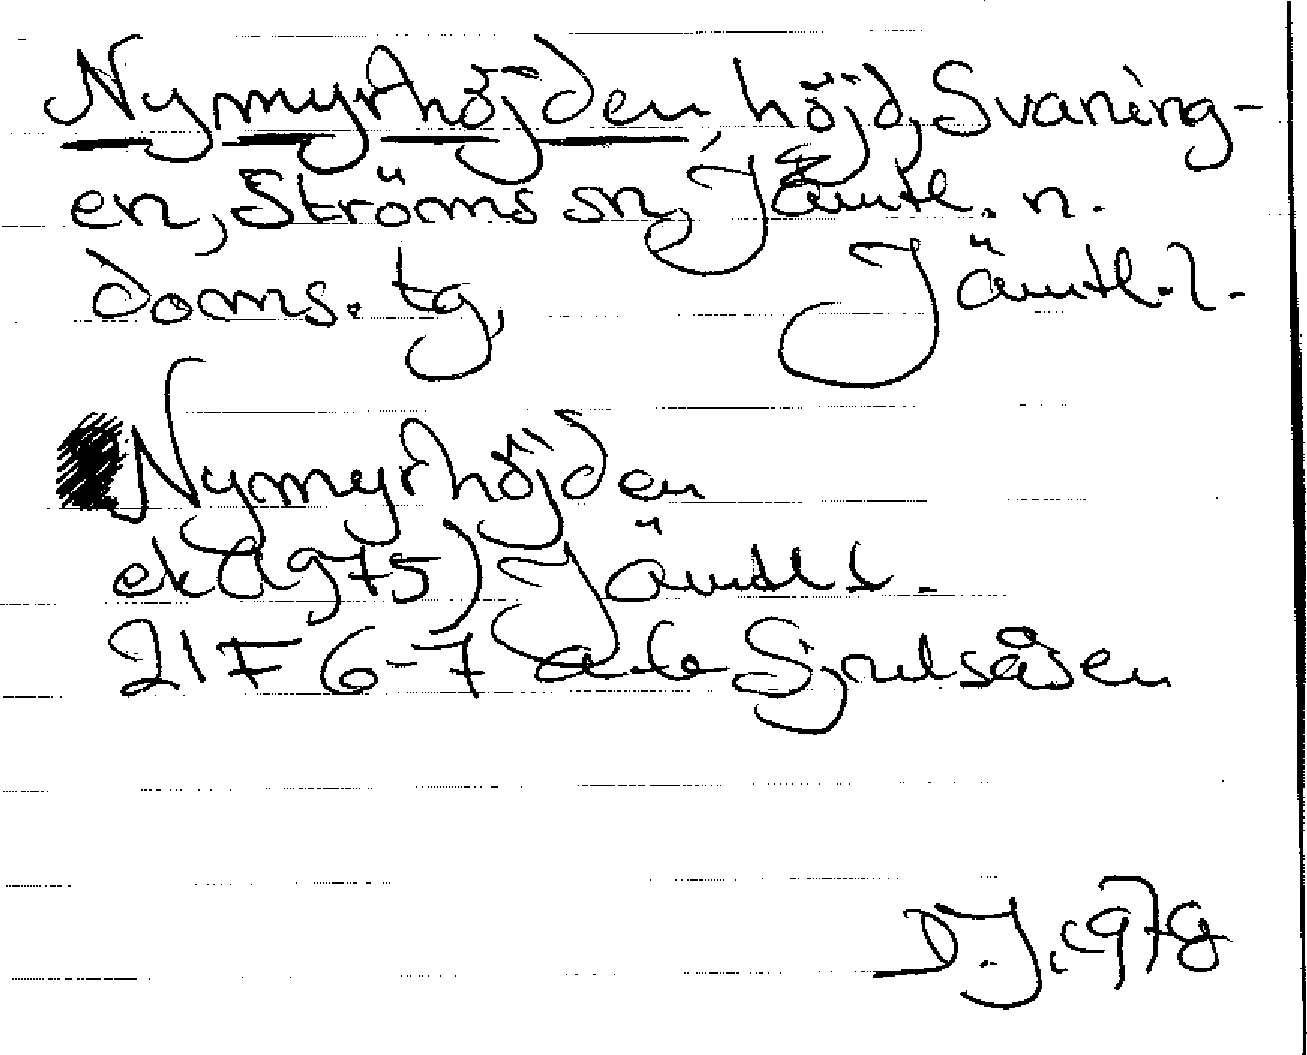 Nymyrhöjden, höjd, Svaning-
en, Ströms sn, Jämtl. n.
doms. tg, Jämtl. l.
Nymyrhöjden
ek (1975) Jämtl l.
21F 6-7 a-b Sjulsåsen
1979